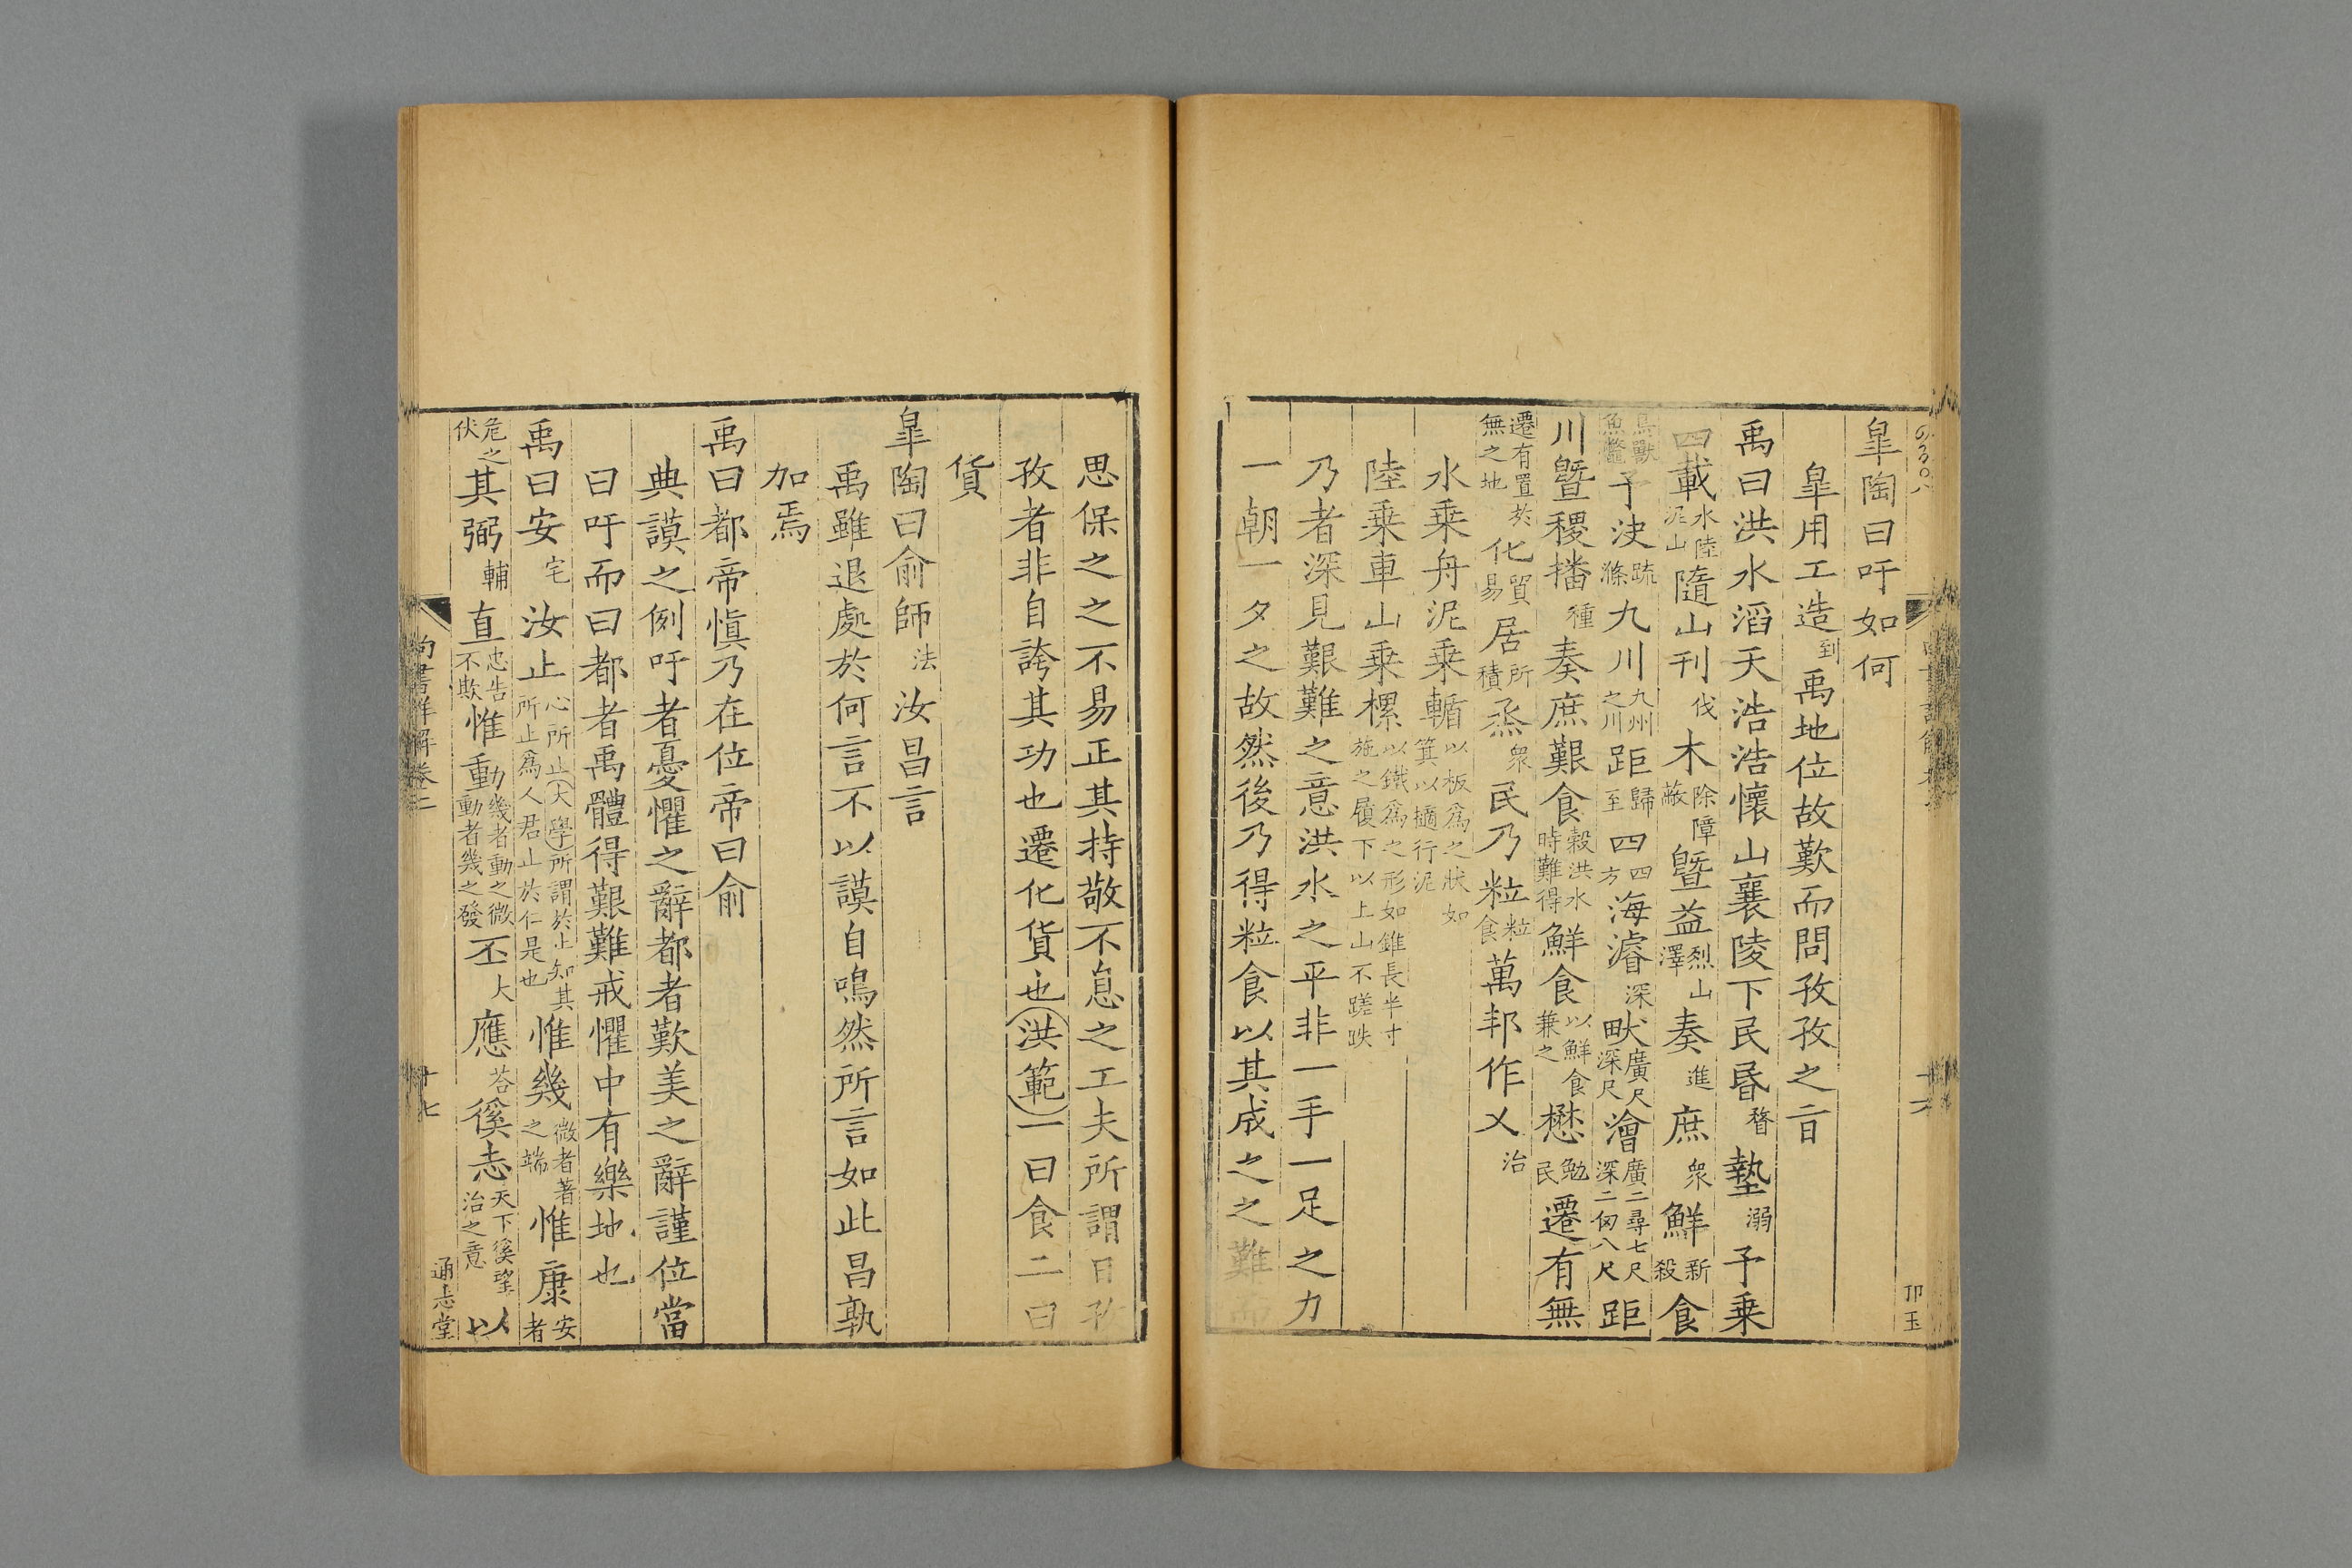 皐陶曰吁如何
皐用工造到禹地位故歎而問孜孜之旨
禹曰洪水滔天浩浩懷山襄陵下民昬瞀墊溺予乗
四載水陸泥山隨山刋伐木除障蔽曁益烈山澤奏進庶衆鮮新殺食
鳥獸魚鼈予决疏滌九川九州之川距歸至四海四方濬深畎廣尺深尺澮廣二尋七尺深二仭八尺距
川曁稷播種奏庶艱食穀洪水時難得鮮食以鮮食兼之懋勉民遷有無
遷有置於無之地化貿易居所積烝衆民乃粒粒食萬邦作乂治
水乗舟泥乗輴以板爲之狀如箕以擿行泥
陸乗車山乗樏以鐵爲之形如錐長半寸施之履下以上山不蹉跌
乃者深見艱難之意洪水之平非一手一足之力
一朝一夕之故然後乃得粒食以其成之之難而
思保之之不易正其持敬不息之工夫所謂日孜
孜者非自誇其功也遷化貨也洪範一曰食二曰
貨
皐陶曰俞師法汝昌言
禹雖退處於何言不以謨自鳴然所言如此昌孰
加焉
禹曰都帝愼乃在位帝曰俞
典謨之例吁者憂懼之辭都者歎美之辭謹位當
曰吁而曰都者禹體得艱難戒懼中有樂地也
禹曰安宅汝止心所止大學所謂於止知其所止爲人君止於仁是也惟幾微者著之端惟康安者
危之伏其弼輔直忠告不欺惟動幾者動之微動者幾之發丕大應荅徯志天下徯望治之意以
尚書詳解卷二
十七
通志堂